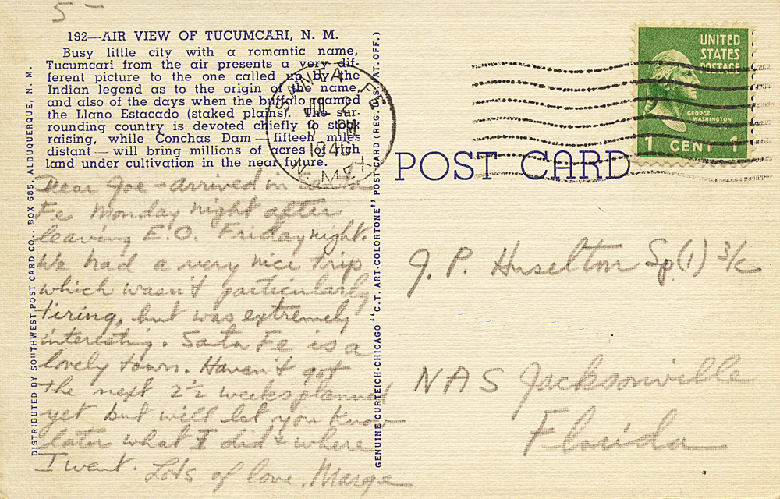 5-
192—AIR VIEW OF TUCUMCARI, N. M.
Busy little city with a romantic name,
Tucumcari from the air presents a very dif-
ferent picture to the one called up by the
Indian legend as to the origin of the name,
and also of the days when the buffalo roamed
the Llano Estacado (staked plains). The sur-
rounding country is devoted chiefly to stock
raising, while Conchas Dam — fifteen miles
distant — will bring millions of acres of rich
land under cultivation in the near future.
Dear Joe - arrived in Santa
Fe Monday night after
leaving E.O. Friday night.
We had a very nice trip
which wasn't particularly
tiring, but was extremely
interesting. Santa Fe is a
lovely town. Haven't got
the next 2½ weeks planned
yet but will let you know
later what I did & where
I went.
Lots of love, Marge
DISTRIBUTED BY SOUTHWEST POST CARD CO., BOX 685, ALBUQUERQUE, N. M.
GENUINE CURTEICH-CHICAGO "C.T. ART-COLORTONE" POST CARD (REG. U.S. PAT. OFF.)
SANTA FE
JUL 2
PM
194
N. MEX.
UNITED
STATES
POSTAGE
GEORGE
WASHINGTON
1 CENT 1
POST CARD
J. P. Huselton Sp(1) 3/c
NAS Jacksonville
Florida